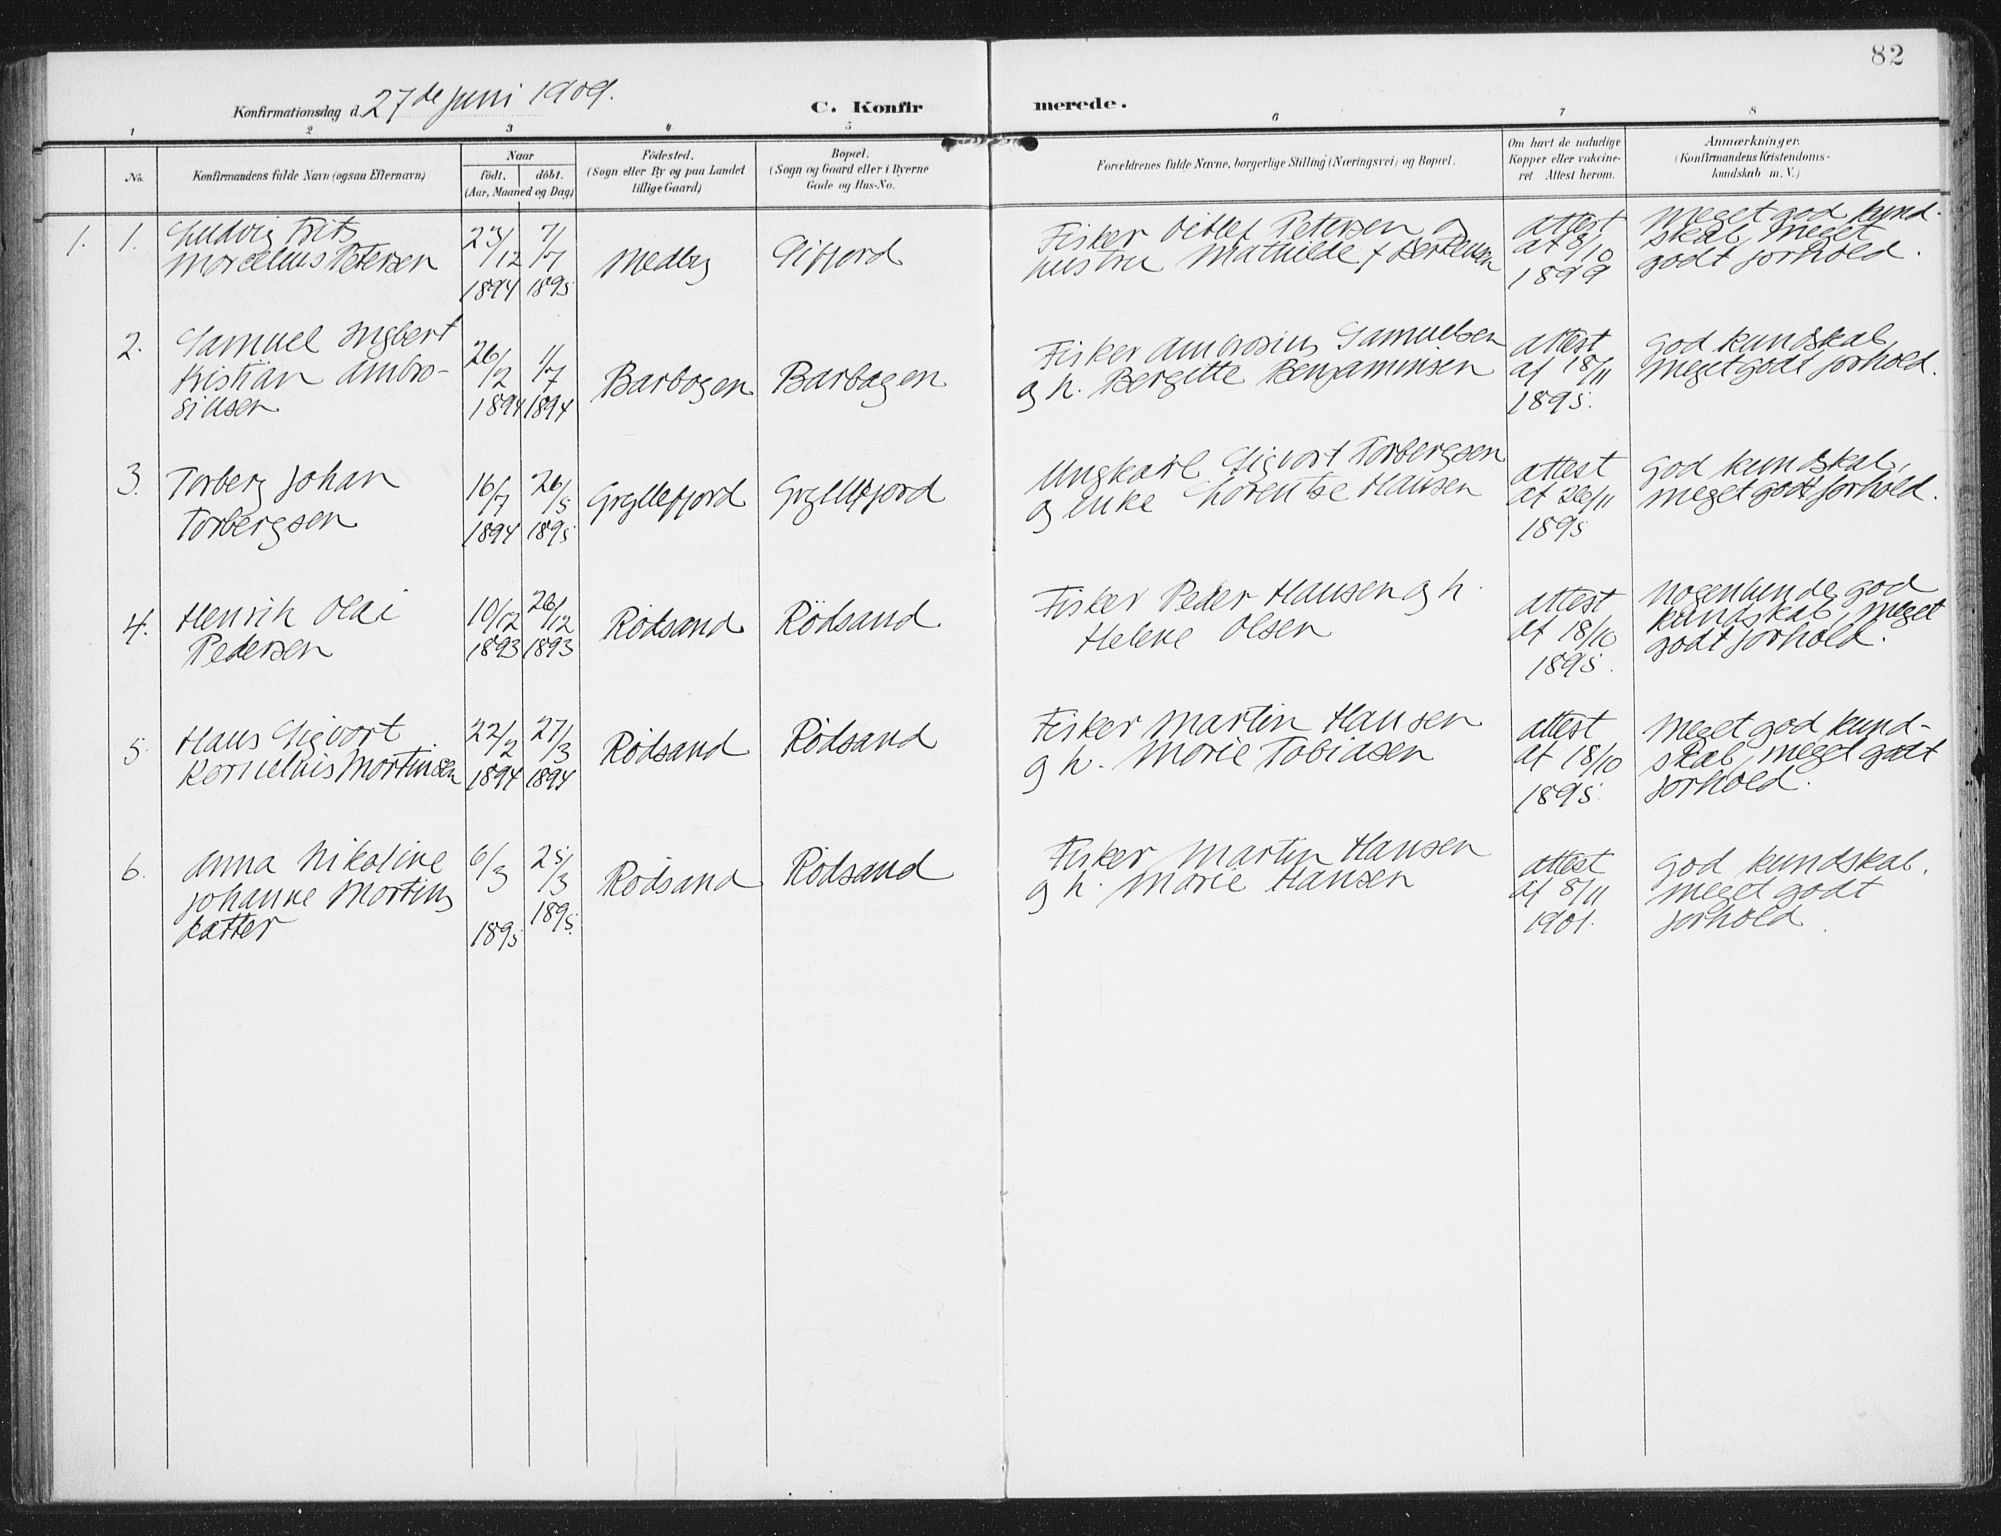 82
Konfirmationsdag d. 27de juni 1909.
C. Konfirmerede.
1 2 3 4 5 6 7 8
No.
Konfirmandens fulde Navn (ogsaa Efternavn)
Naar
födt. döbt.
(Aar, Maaned og Dag)
Födested.
(Sogn eller By og paa Landet
tillige Gaard)
Bopæl.
(Sogn og Gaard eller i Byerne
Gade og Hus-No.
Forældrenes fulde Navne, borgerlige Stilling (Næringsvei) og Bopæl.
Om havt de naturlige
Kopper eller vakcine-
ret. Attest herom.
Anmærkninger.
(Konfirmandens Kristendoms-
kundskab m. V.)
1. 1. Ludvig Frits
Marcelius Petersen
23/12 1894
7/7 1895
Medby
Gifjord
Fisker Petersen og
hustru Mathilde
attest
af 8/10
1899
Meget god kund-
skab, meget
godt forhold.
2. Samuel Ingbert
Kristian Ambro-
siusen
26/2 1894
1/7 1894
Barbogen
Barbogen
Fisker Ambrosius Samuelsen
og h. Bergitte Benjaminsen
attest
af 18/11
1895.
God kundskab,
meget godt forhold.
3. Torberg Johan
Torbergsen
16/7 1894
26/5 1895
Gryllefjord
Gryllefjord
Ungkarl Sigvart Torbergsen
og enke Lorentse Hansen
attest
af 26/11
1895
God kundskab,
meget godt forhold.
4. Henrik Olai
Pedersen
10/12 1893
26/12 1893
Rödsand
Rödsand
Fisker Peder Hansen og h.
Helene Olsen
attest
af 18/10
1895.
Nogenlunde god
kundskab, meget
godt forhold.
5. Hans Sigvart
Kornelius Martinsen
22/2 1894
27/3 1894
Rödsand
Rödsand
Fisker Martin Hansen
og h. Marie Tobiasen
attest
af 18/10
1895.
Meget god kund-
skab, meget godt
forhold.
6. Anna Nikoline
Johanne Martins
datter
6/3 1895
25/3 1895.
Rödsand
Rödsand
Fisker Martin Hansen
og h. Marie Hansen
attest
af 8/11
1901.
God kundskab.
meget godt
forhold.